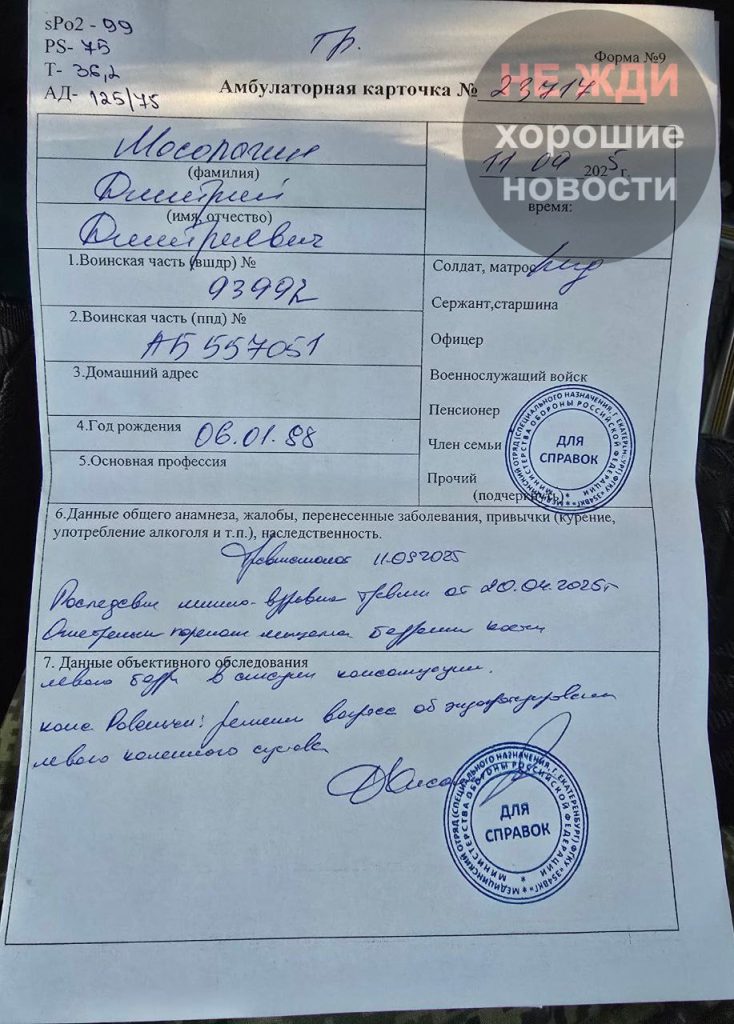 sPo2 - 99
PS- 75
Т- 36,2
АД- 125/75
тр.
Форма №9
Амбулаторная карточка № 23717
НЕ ЖДИ
хорошие
новости
(фамилия)
Дмитрий
(имя, отчество)
Дмитриевич
11 09 2025 г.
время:
1.Воинская часть (вшдр) №
93992
2.Воинская часть (ппд) №
АБ 557051
3.Домашний адрес
4.Год рождения 06.01.88
5.Основная профессия
Солдат, матрос
Сержант,старшина
Офицер
Военнослужащий войск
Пенсионер
Член семьи
Прочий
(подчеркнуть)
МЕДИЦИНСКИЙ ОТРЯД (СПЕЦИАЛЬНОГО НАЗНАЧЕНИЯ, Г. ЕКАТЕРИНБУРГ) ФГКУ «354ВКГ»
МИНИСТЕРСТВА ОБОРОНЫ РОССИЙСКОЙ ФЕДЕРАЦИИ
ДЛЯ
СПРАВОК
6.Данные общего анамнеза, жалобы, перенесенные заболевания, привычки (курение,
употребление алкоголя и т.п.), наследственность.
Травматолог 11.09.2025
Последствия минно-взрывной травмы от 20.04.2025г
перелом бедренной кости
7. Данные объективного обследования
левого бедра в стадии консолидации.
решения вопроса об эндопротезировании
левого коленного сустава
МЕДИЦИНСКИЙ ОТРЯД (СПЕЦИАЛЬНОГО НАЗНАЧЕНИЯ, Г. ЕКАТЕРИНБУРГ) ФГКУ «354ВКГ»
МИНИСТЕРСТВА ОБОРОНЫ РОССИЙСКОЙ ФЕДЕРАЦИИ
ДЛЯ
СПРАВОК